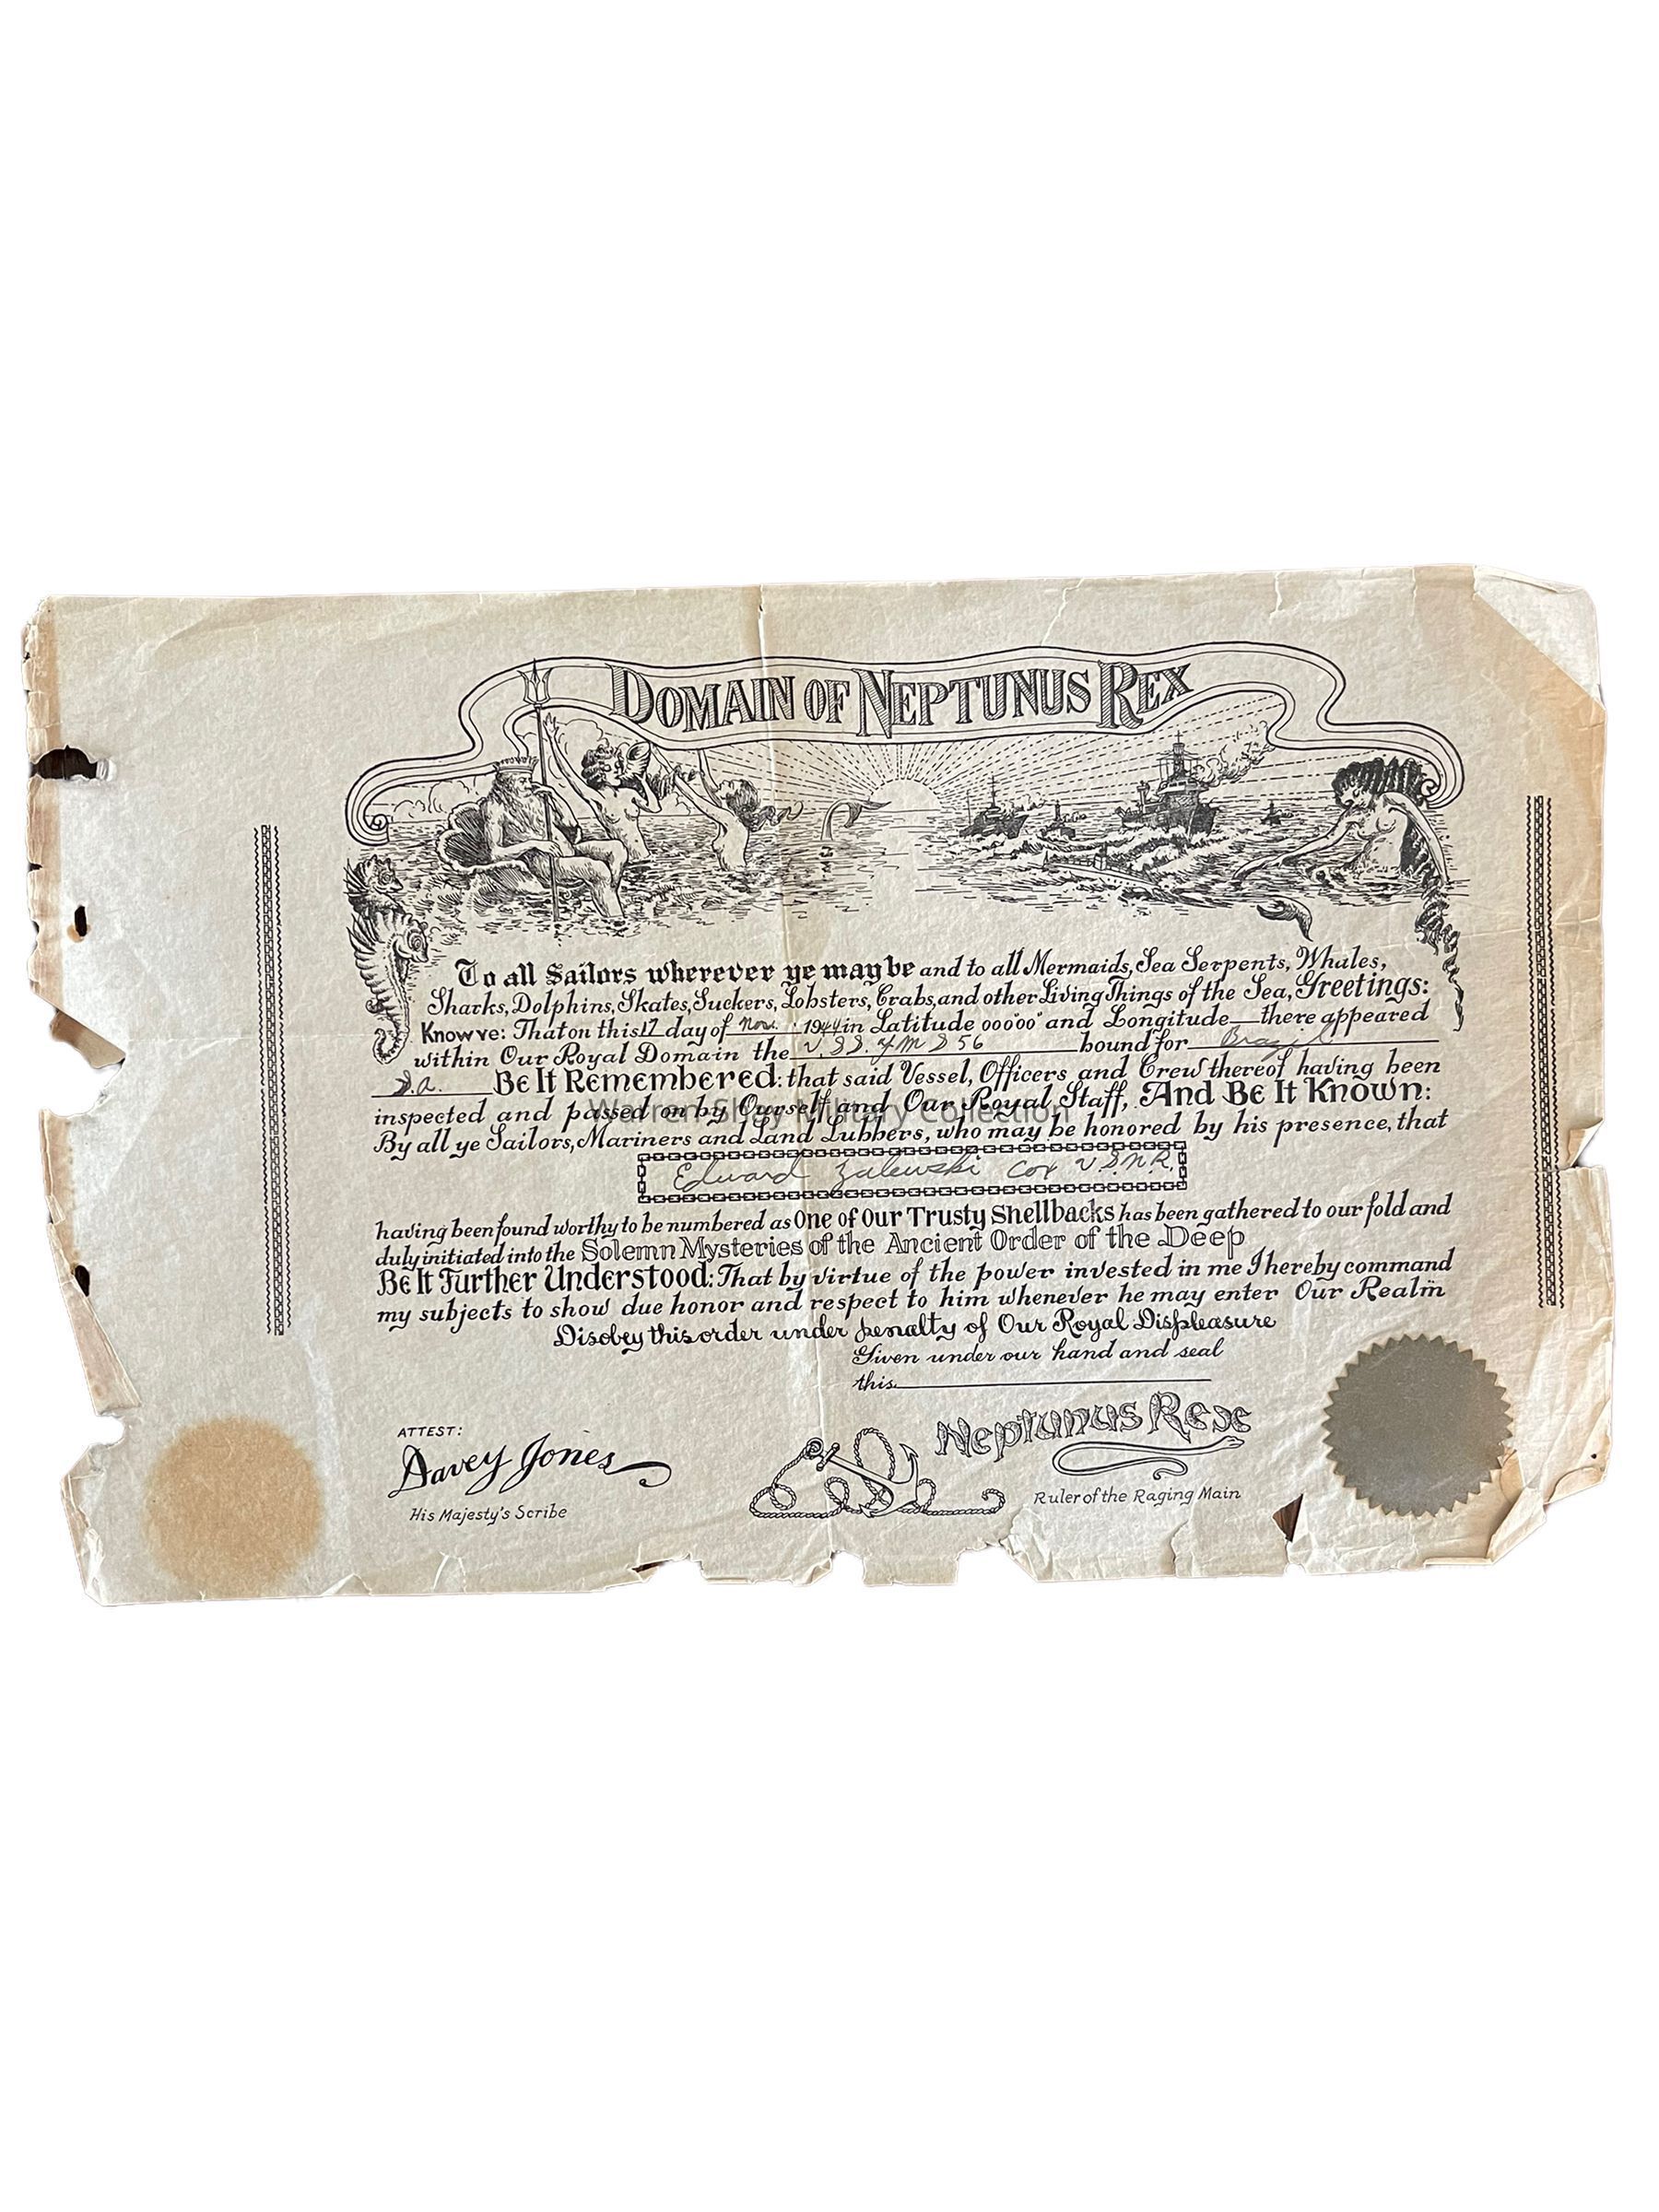 DOMAIN OF NEPTUNUS REX
To all Sailors wherever ye may be and to all Mermaids, Sea Serpents, Whales,
Sharks, Dolphins, Skates, Suckers, Lobsters, Crabs, and other Living Things of the Sea, Greetings:
Know ye: That on this 17 day of Nov. 1944 in Latitude 00000' and Longitude there appeared
within Our Royal Domain the U.S.S. YMS 56 bound for Brazil
S.A. Be It Remembered: that said Vessel, Officers and Crew thereof having been
inspected and passed on by Ourself and Our Royal Staff, And Be It Known:
Warren Shay Military Collection
By all ye Sailors, Mariners and Land Lubbers, who may be honored by his presence, that
Edward Zalewski Cox U.S.N.R.
having been found worthy to be numbered as One of Our Trusty Shellbacks has been gathered to our fold and
duly initiated into the Solemn Mysteries of the Ancient Order of the Deep
Be It Further Understood: That by virtue of the power invested in me I hereby command
my subjects to show due honor and respect to him whenever he may enter Our Realm
Disobey this order under penalty of Our Royal Displeasure
Given under our hand and seal
this
ATTEST:
Davey Jones
His Majesty's Scribe
Neptunus Rex
Ruler of the Raging Main